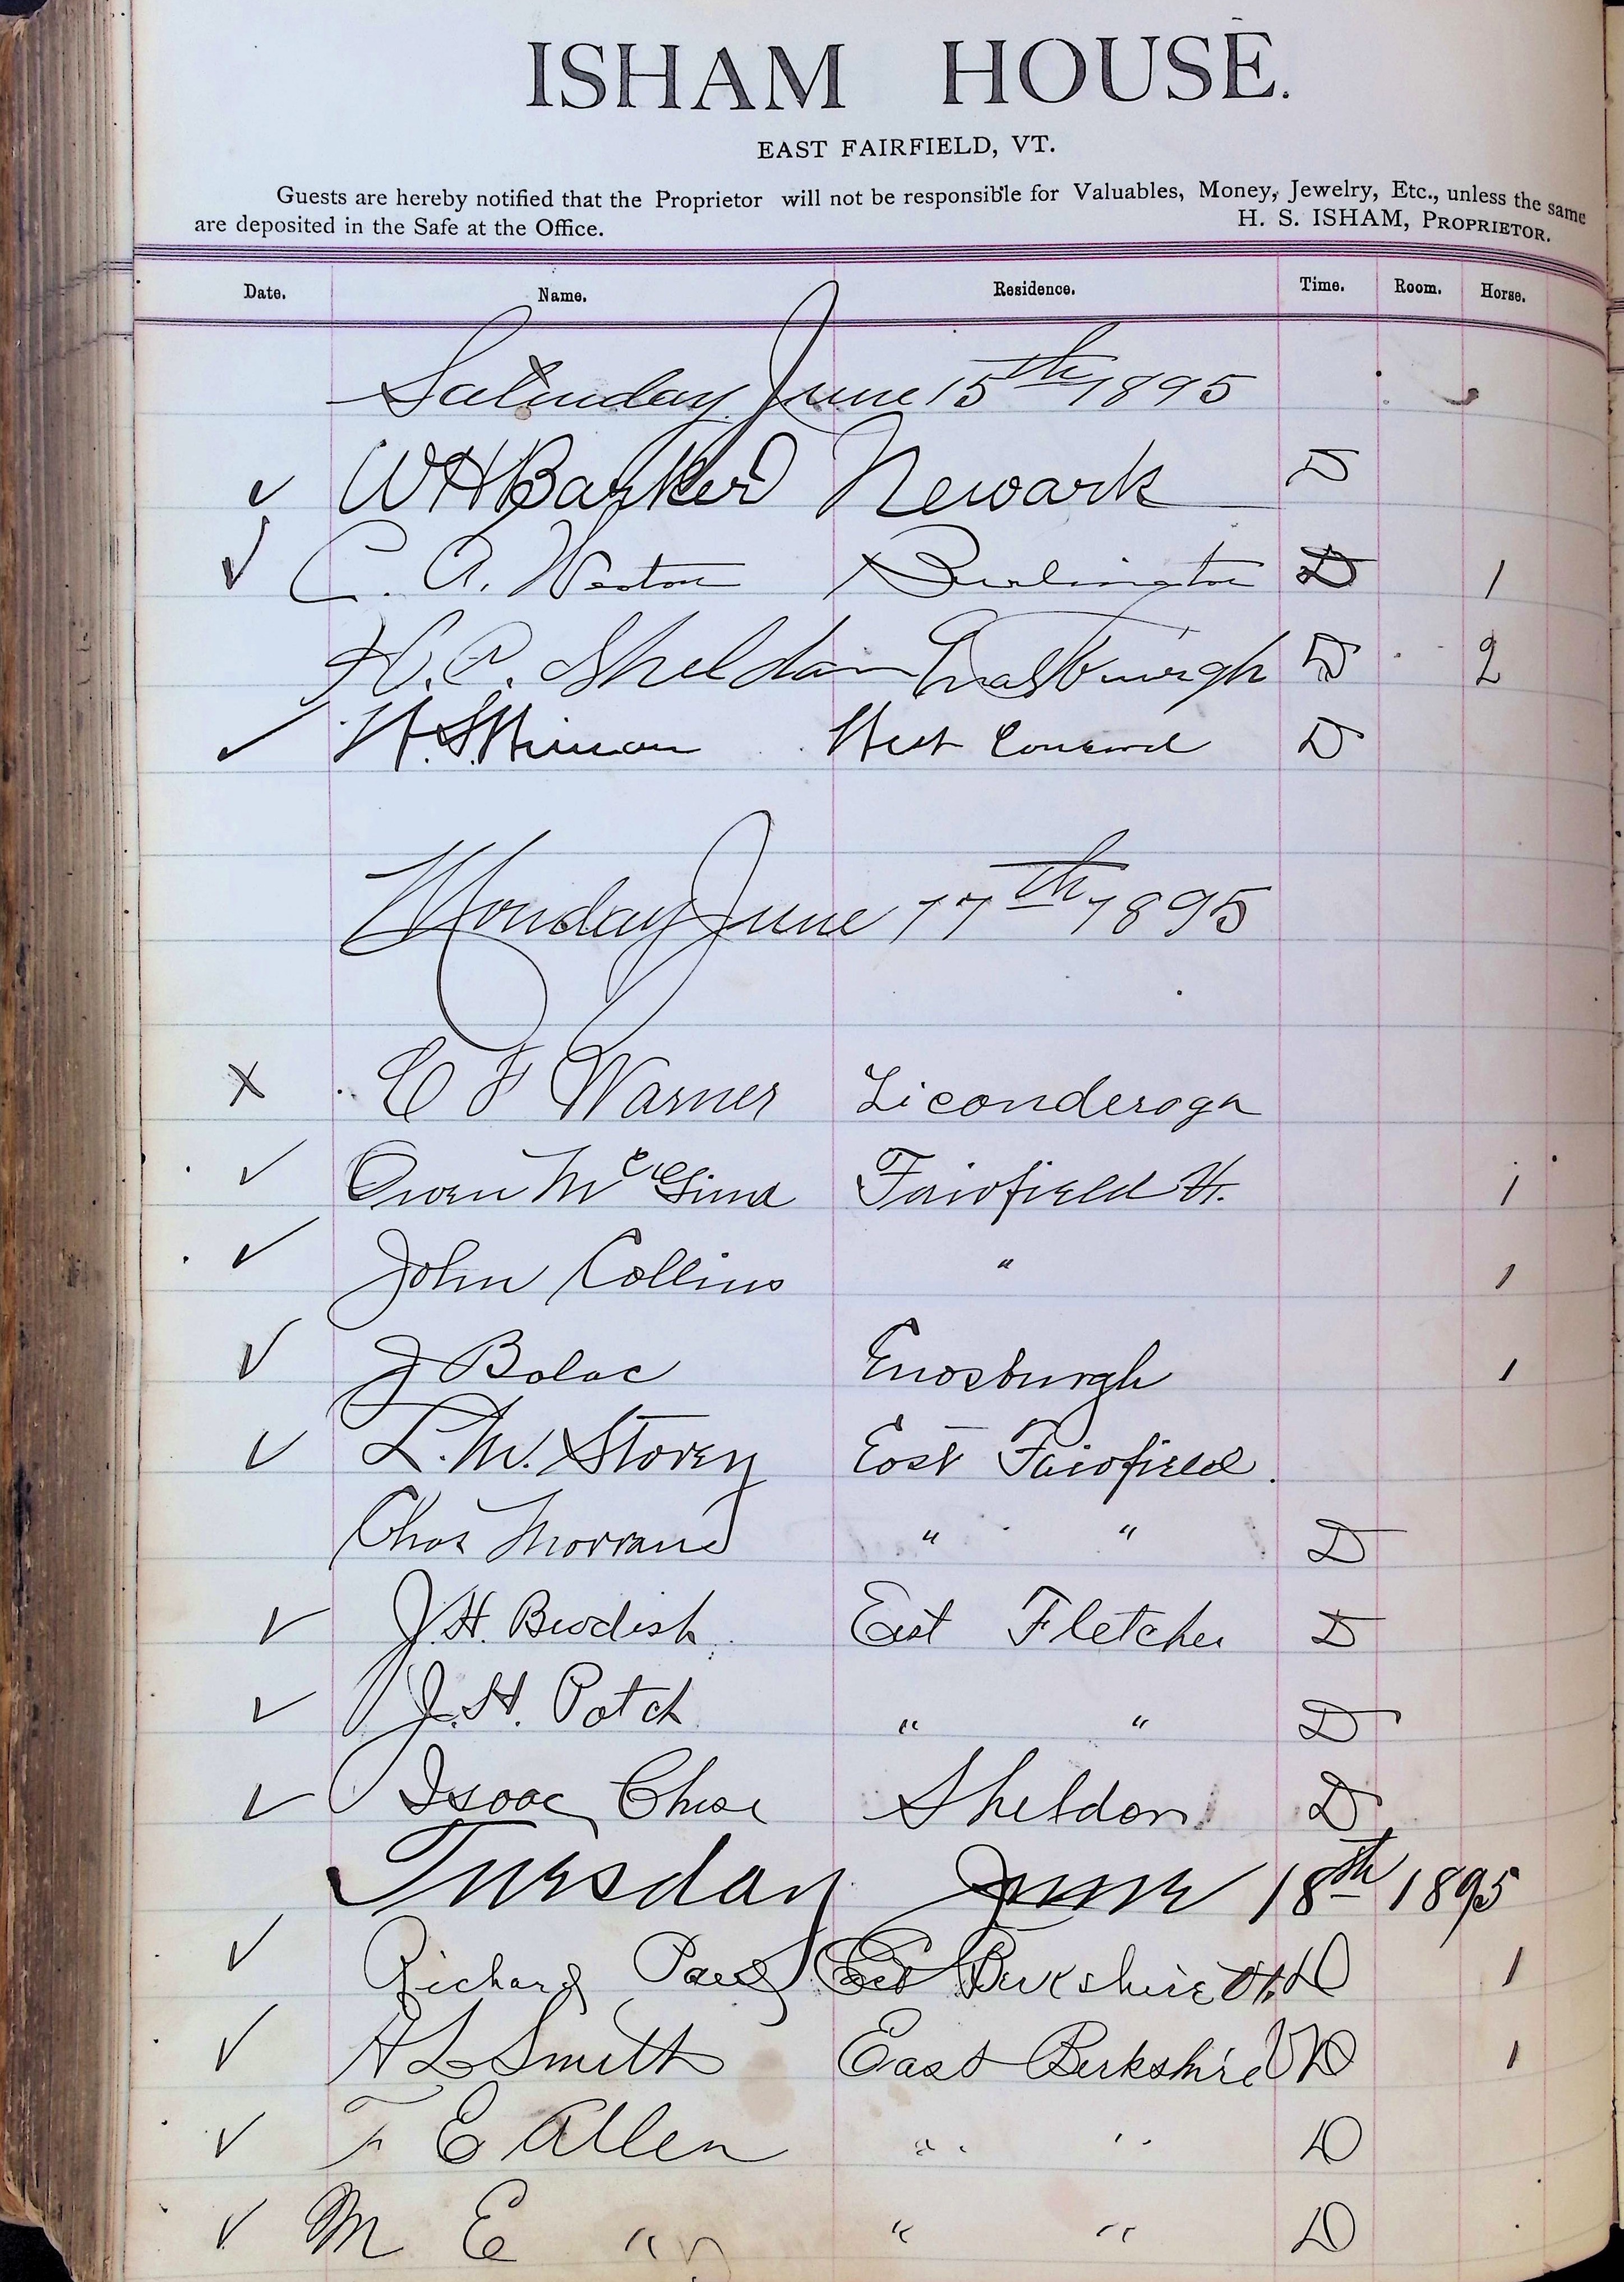 ISHAM HOUSE.
EAST FAIRFIELD, VT.
Guests are hereby notified that the Proprietor will not be responsible for Valuables, Money, Jewelry, Etc., unless the same
are deposited in the Safe at the Office. H. S. ISHAM, PROPRIETOR.
Date. Name. Residence. Time. Room. Horse.
Saturday June 15th 1895
✓ W H Barker Newark D
✓ C. A. Weston Burlington D 1
H. C. Sheldon D 2
✓ West Concord D
Monday June 17th 1895
X C F Warner Ticonderoga
✓ Owen McGinn Fairfield Vt. 1
✓ John Collins " 1
✓ J Bolac Enosburgh 1
✓ L. M. Storey East Fairfield.
Chas " " D
✓ J. H. East Fletcher D
✓ J. H. Patch " " D
✓ Isaac Chase Sheldon D
Tuesday June 18th 1895
✓ Richard East Berkshire Vt. D 1
✓ A L Smith East Berkshire Vt D 1
✓ F E Allen " " D
✓ M E " " " D